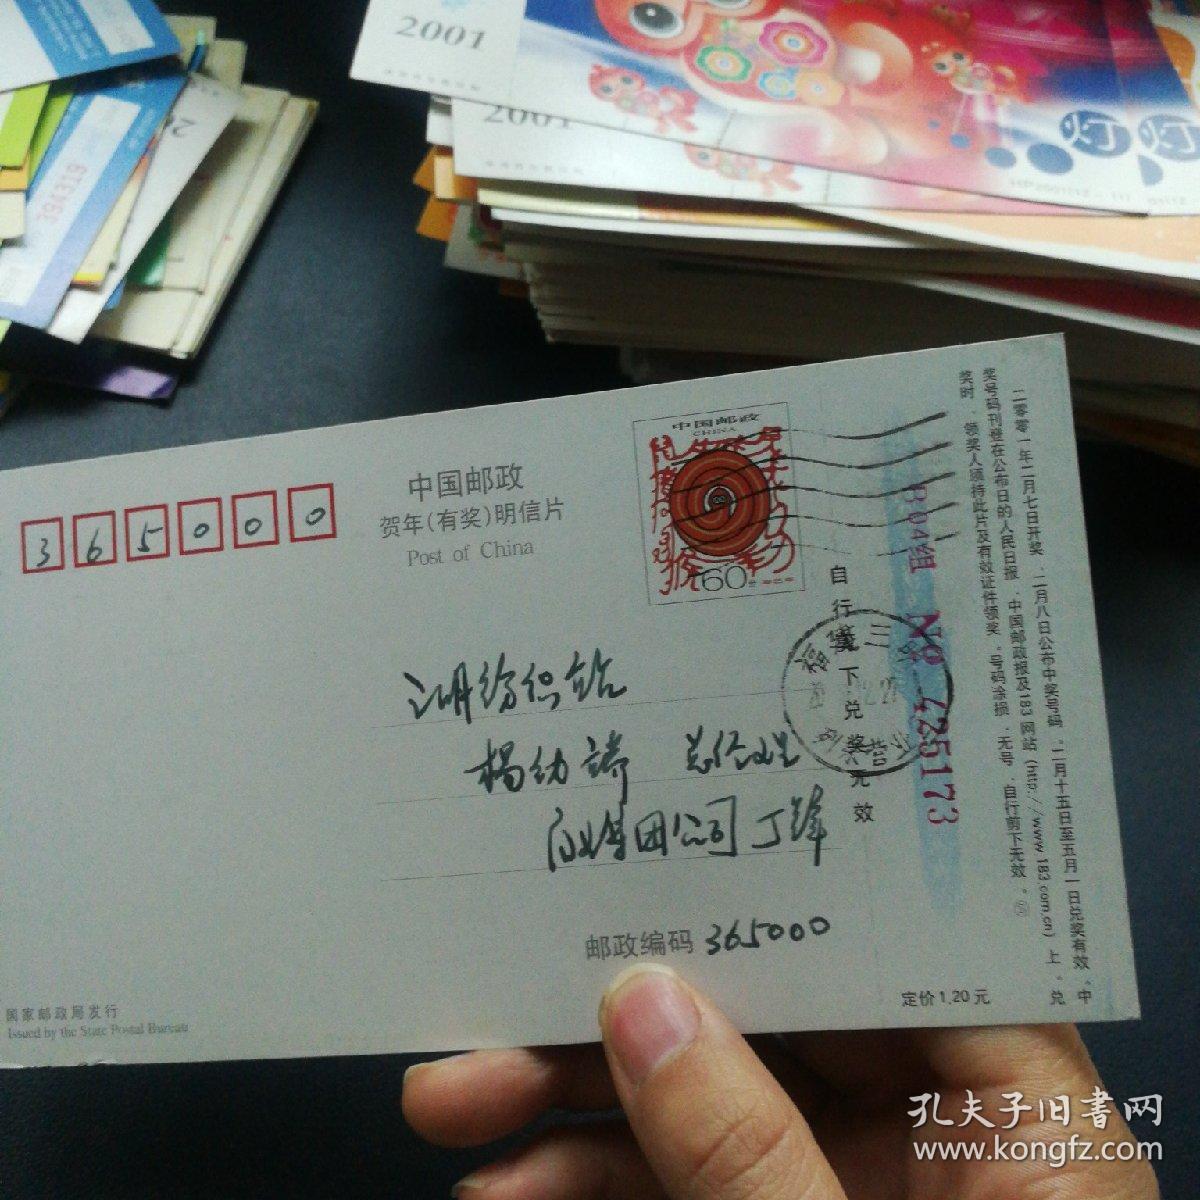 2001
2001
3945319
365000
中国邮政
贺年(有奖)明信片
Post of China
中国邮政
CHINA
60
三明纺织站
杨幼端 总经理
商业集团公司 丁锋
邮政编码 365000
国家邮政局发行
Issued by the State Postal Bureau
定价1.20元
自行裁下兑奖无效
福建三明
营业
804组 No 425173
二零零一年二月七日开奖,二月八日公布中奖号码。二月十五日至五月一日兑奖有效。中
奖号码刊登在公布日的人民日报、中国邮政报及183网站(http://www.183.com.cn)上。兑
奖时,领奖人须持此片及有效证件领奖。号码涂损、无号、自行剪下无效。
孔夫子旧書网
www.kongfz.com